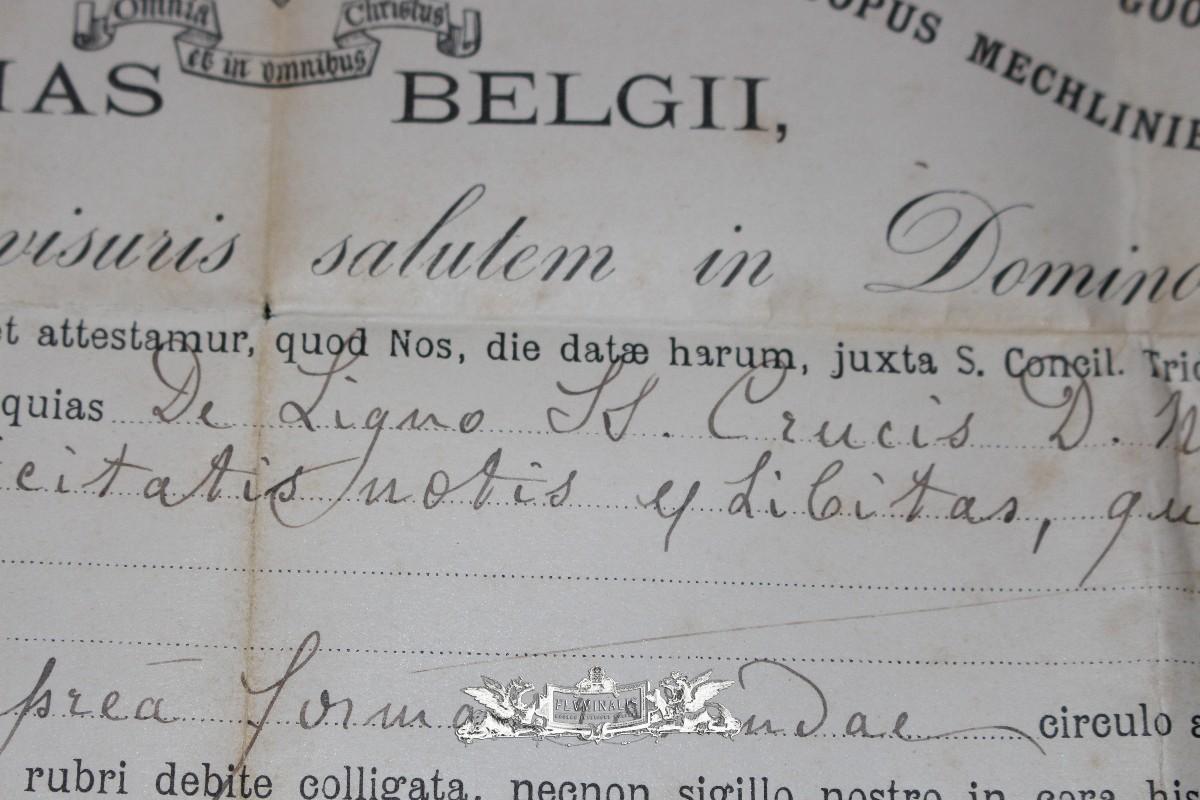 Omnia Christus
et in omnibus
GOO
OPUS MECHLINIE
IAS BELGII,
visuris salutem in Domino
et attestamur, quod Nos, die datæ harum, juxta S. Concil. Trid
quias De Ligno SS. Crucis D. N
icitatis notis exhibitas, qu
prea forma ndae circulo a
rubri debite colligata, necnon sigillo nostro in cera his
FLUMINALIS